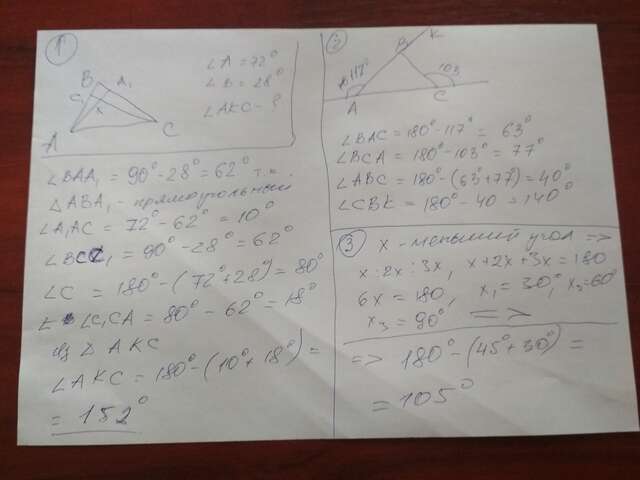 ①
B A₁
C₁ K
A C
∠A = 72°
∠B = 28°
∠AKC - ?
∠BAA₁ = 90° - 28° = 62° т.к.
△ABA₁ - прямоугольный
∠A₁AC = 72° - 62° = 10°
∠BCC₁ = 90° - 28° = 62°
∠C = 180° - (72° + 28°) = 80°
∠C₁CA = 80° - 62° = 18°
из △AKC
∠AKC = 180° - (10° + 18°) =
= 152°
②
B K
117° 103
A C
∠BAC = 180° - 117° = 63°
∠BCA = 180° - 103° = 77°
∠ABC = 180° - (63° + 77°) = 40°
∠CBK = 180° - 40 = 140°
③ x - меньший угол =>
x : 2x : 3x, x + 2x + 3x = 180
6x = 180, x₁ = 30°, x₂ = 60°
x₃ = 90° =>
=> 180° - (45° + 30°) =
= 105°